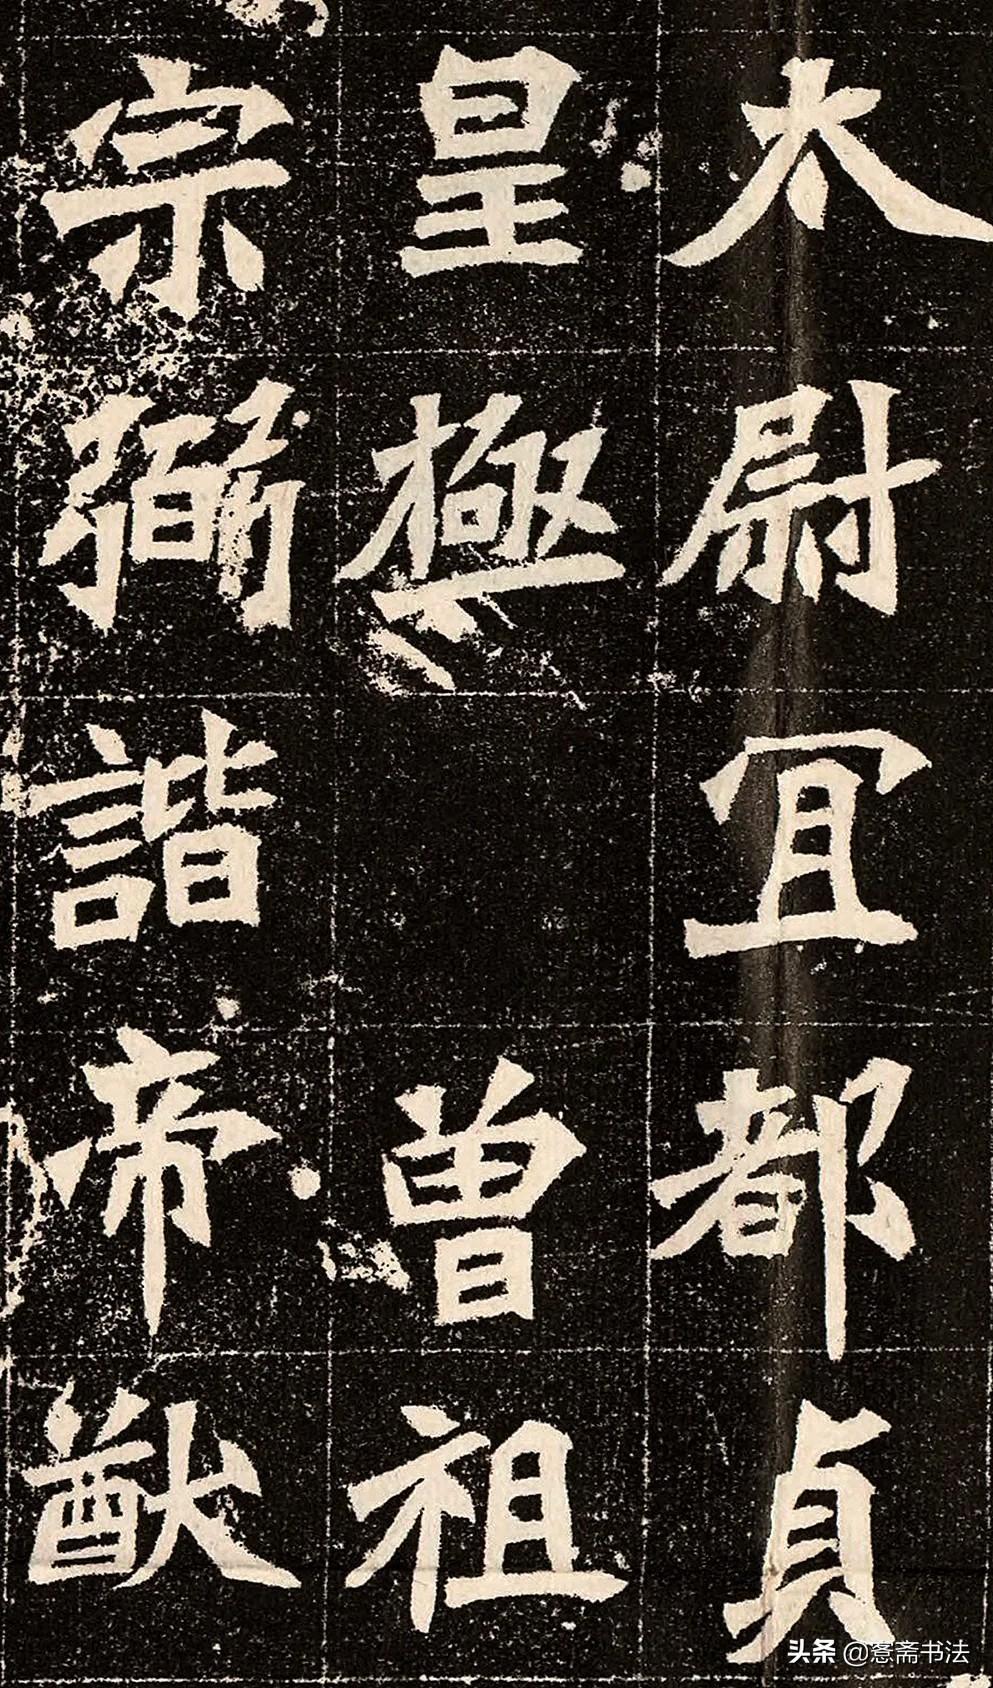 太尉冝都貞
皇極 曾祖
宗弼諧帝猷
头条 @窓斋书法